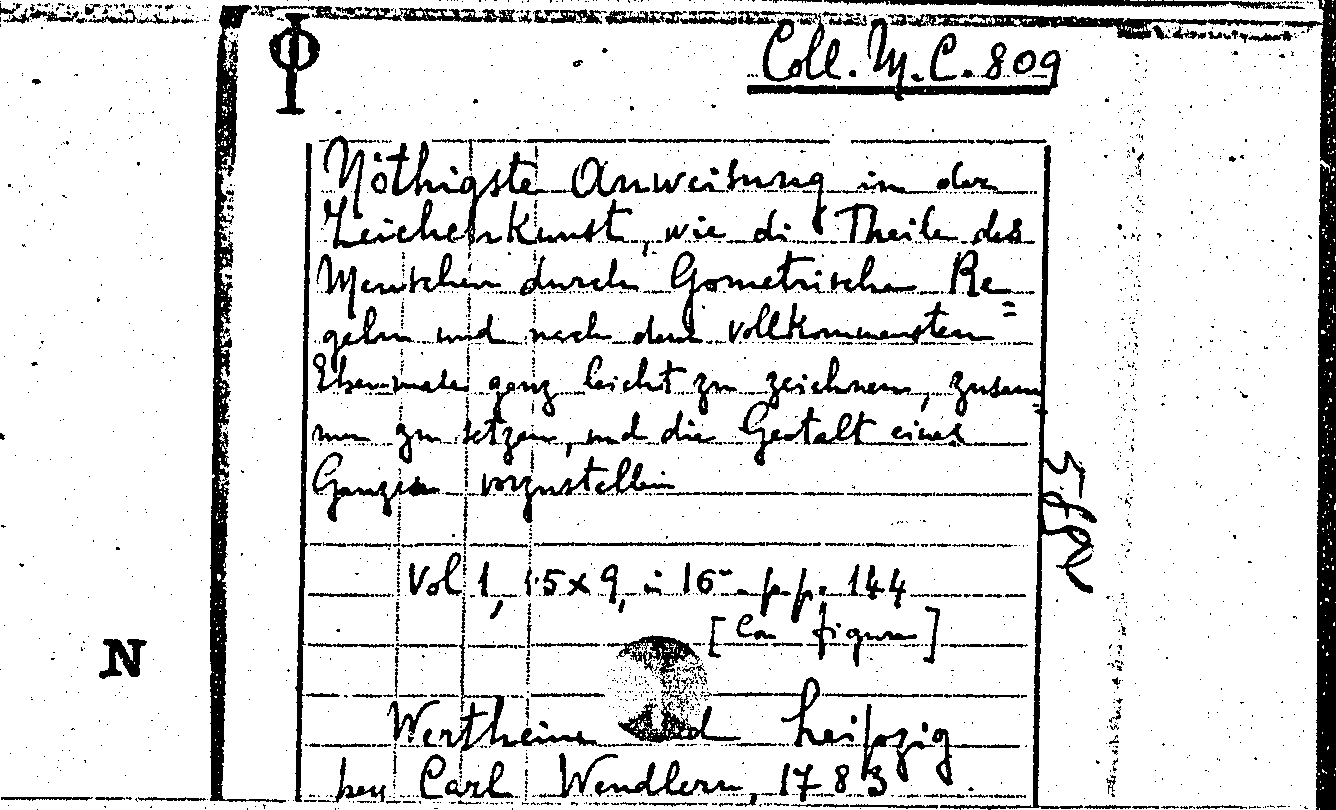 Φ
Coll. M. C. 809
Nöthigste Anweisung in der
Zeichenkunst, wie di Theile des
Menschen durch Gometrische Re=
geln und nach dem vollkommensten
Ebenmase ganz leicht zu zeichnen, zusam=
men zu setzen, und die Gestalt eines
Ganzen vorzustellen
Vol 1, 15x9, in 16° pp. 144
[Con figure]
N
Wertheim Leipzig
bey Carl Wendlern, 1783